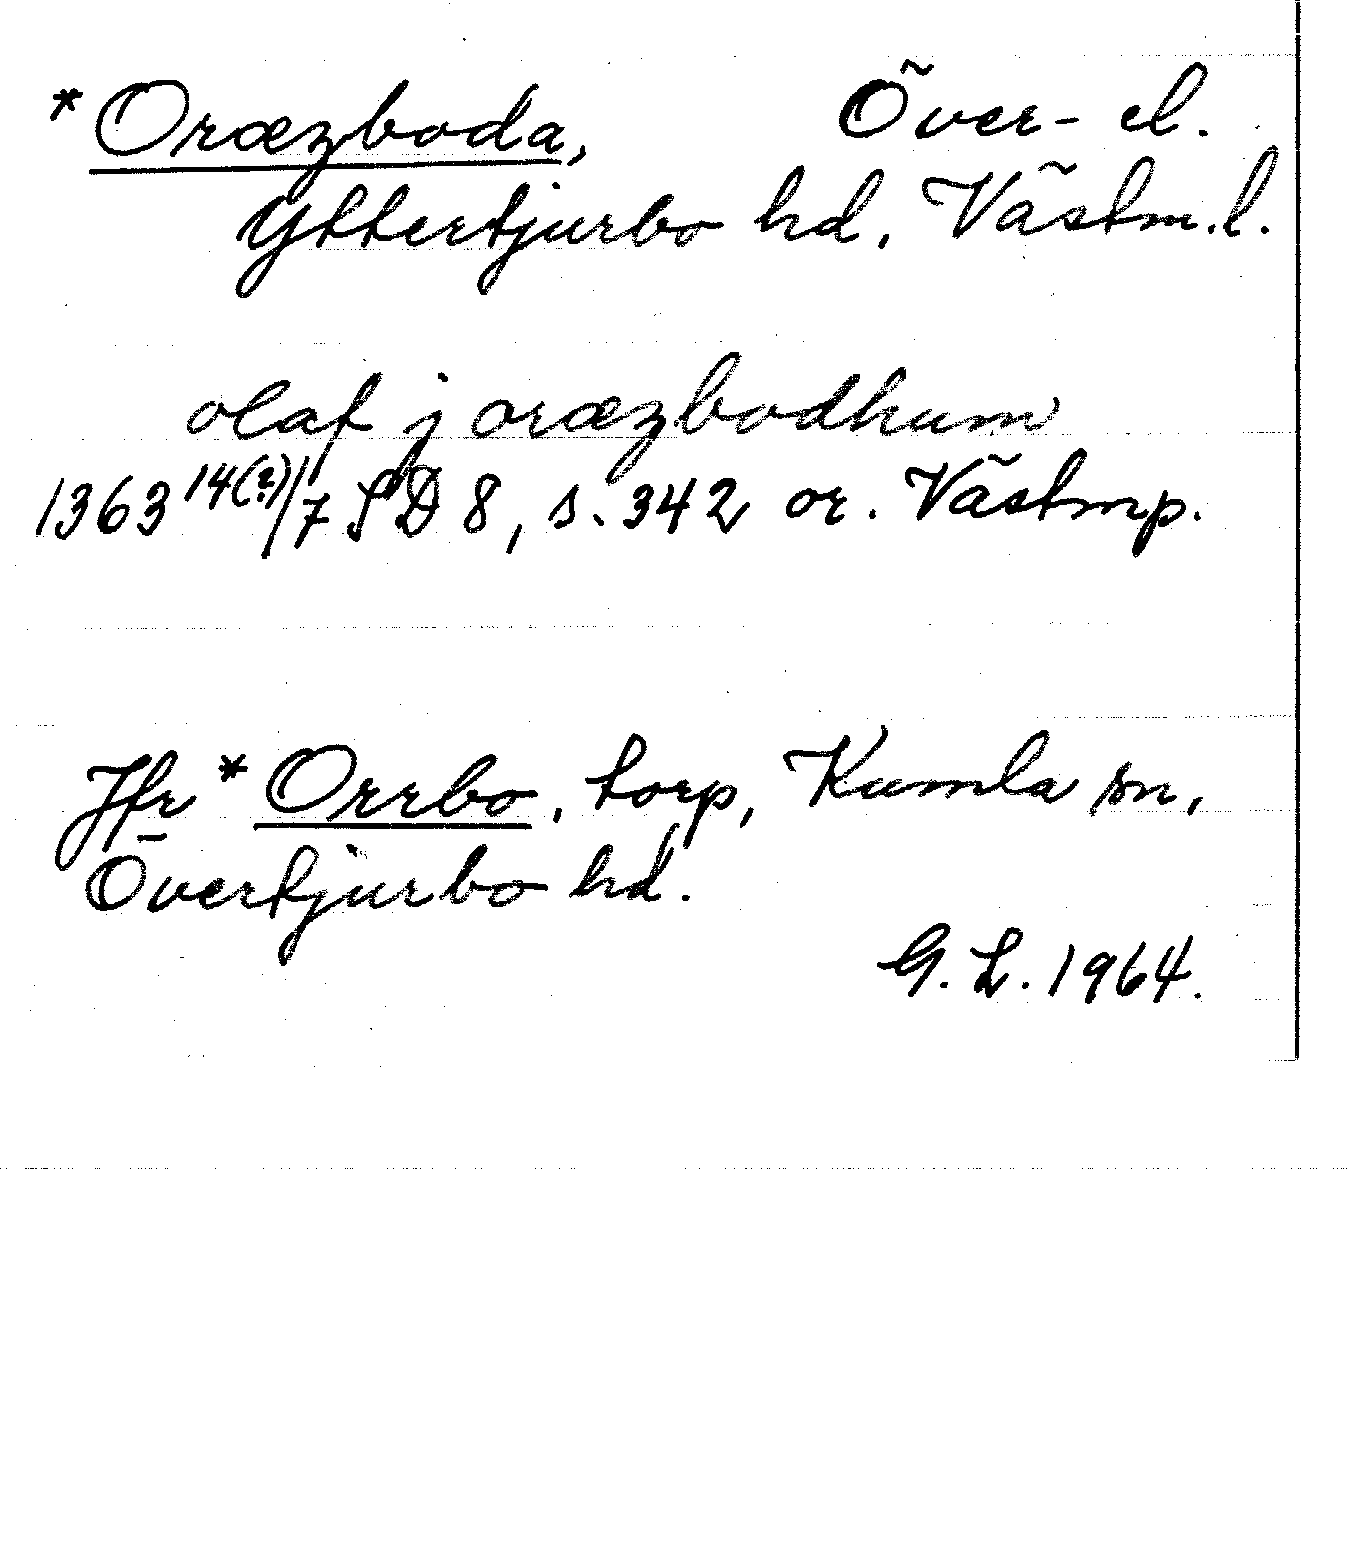 *Oræzboda, Över- el.
Yttertjurbo hd, Västm.l.
olaf j oræzbodhum
1363 14(?)/7 SD 8, s. 342 or. Västmp.
Jfr *Orrbo, torp, Kumla sn,
Övertjurbo hd.
G. L. 1964.